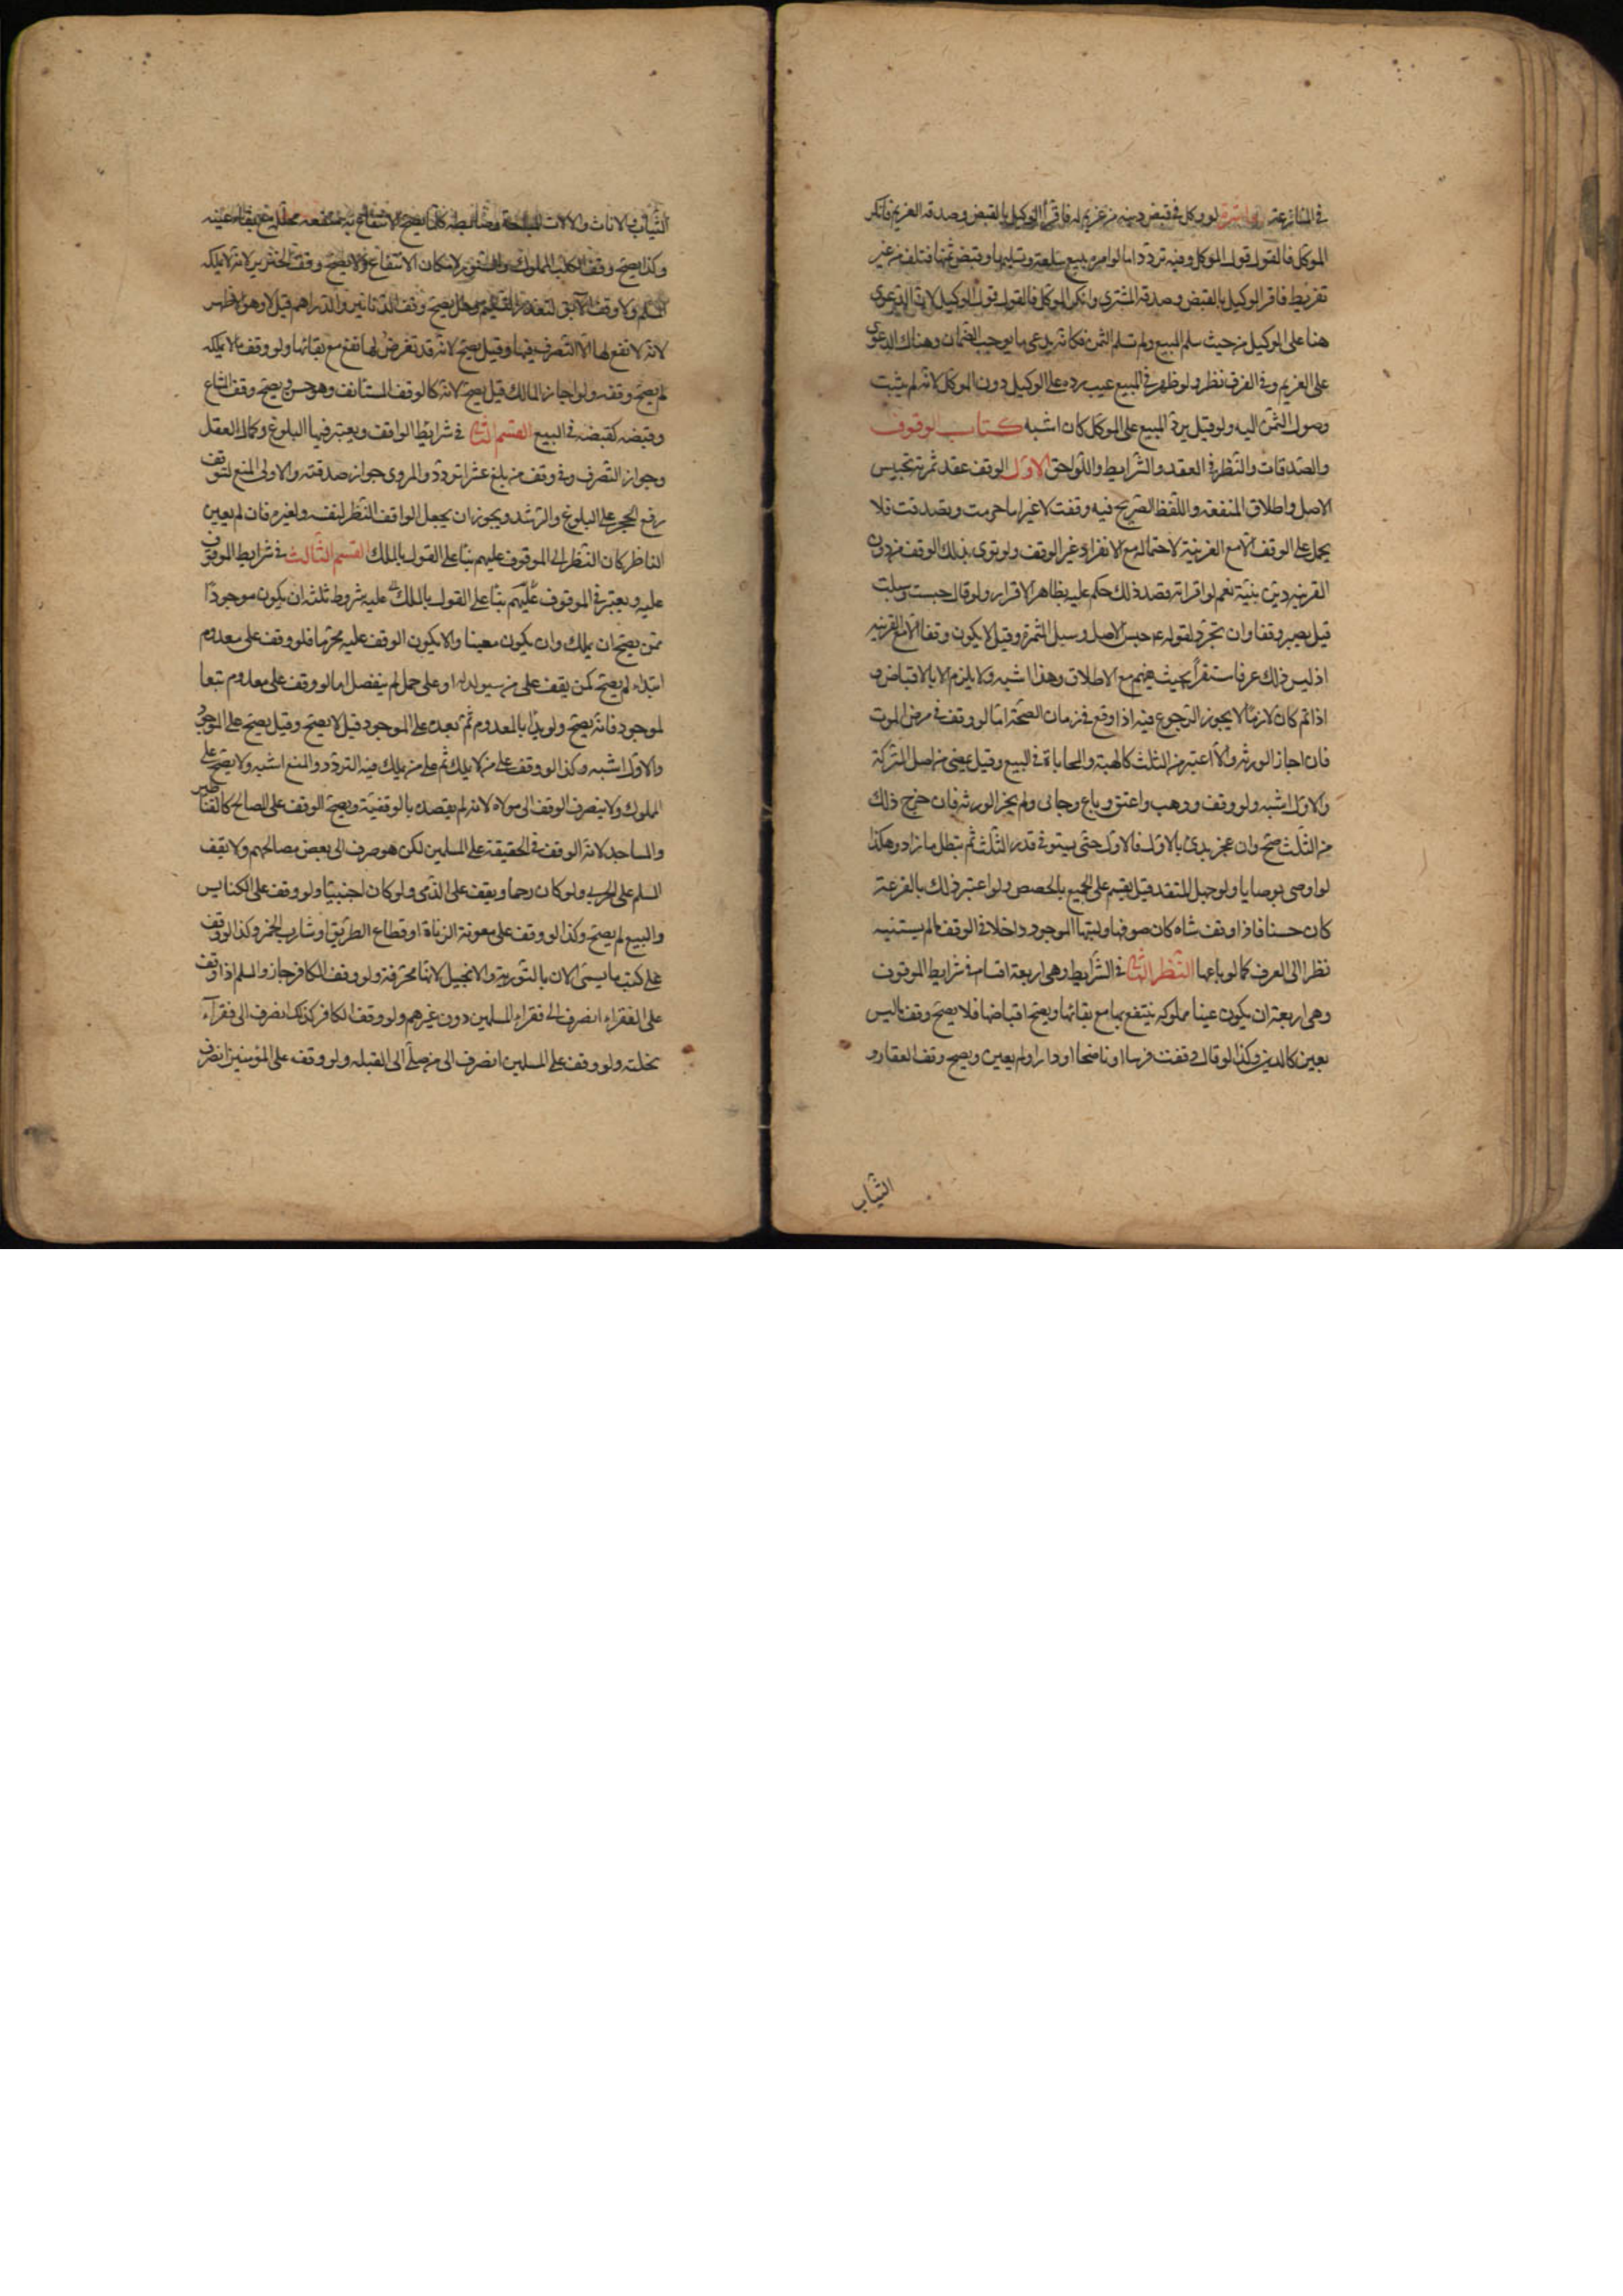 في المنازعة العاشرة لو وكل في قبض دينه من غريم له فاقر الوكيل بالقبض وصدقه الغريم فانكر
الموكل فالقول قول الموكل وفيه تردد اما لو امره ببيع سلعة وتسليمها وقبض ثمنها فتلف من غير
تفريط فاقر الوكيل بالقبض وصدقه المشتري وانكر الموكل فالقول قول الوكيل لان الدعوى
هنا على الوكيل من حيث سلم المبيع ولم تسلم الثمن فكانه يدعي ما يوجب الضمان وهناك الدعوى
على الغريم وفي الفرق نظر ولو ظهر في المبيع عيب رده على الوكيل دون الموكل لانه لم يثبت
وصول الثمن اليه ولو قيل يرد المبيع على الموكل كان اشبه كتاب الوقوف
والصدقات والنظر في العقد والشرايط واللواحق الاول الوقف عقد ثمرته تحبيس
الاصل واطلاق المنفعة واللفظ الصريح فيه وقفت لا غير اما حرمت وتصدقت فلا
يحمل على الوقف الا مع القرينة لاحتماله مع الانفراد غير الوقف ولو نوى بذلك الوقف من دون
القرينة دين بنيته نعم لو اقر انه قصد ذلك حكم عليه بظاهر الاقرار ولو قال حبست وسبلت
قيل يصير وقفا وان تجرد لقوله ع حبس الاصل وسبل الثمرة وقيل لا يكون وقفا الا مع القرينه
اذ ليس ذلك عرفا مستقرا بحيث يفهم مع الاطلاق وهذا اشبه ولا يلزم الا بالاقباض و
اذا تم كان لازما لا يجوز الرجوع فيه اذا وقع في زمان الصحة اما لو وقف في مرض الموت
فان اجاز الورثه والا اعتبر من الثلث كالهبة والمحاباة في البيع وقيل يمضى من اصل التركة
والاول اشبه ولو وقف ووهب واعتق وباع وحابى ولم يجز الورثه فان خرج ذلك
من الثلث صح وان عجز بدئ بالاول فالاول حتى يستوفي قدر الثلث ثم تبطل ما زاد وهكذا
لو اوصى بوصايا ولو جهل المتقدم قيل يقسم على الجميع بالحصص ولو اعتبر ذلك بالقرعة
كان حسنا فاذا وقف شاه كان صوفها ولبنها الموجود داخلا في الوقف ما لم يستثنيه
نظرا الى العرف كما لو باعها النظر الثاني في الشرايط وهي اربعة اقسام في شرايط الموقوف
وهي اربعة ان يكون عينا مملوكه ينتفع بها مع بقائها ويصح اقباضها فلا يصح وقف ما ليس
بعين كالدين وكذا لو قال وقفت فرسا او ناضحا او دارا ولم يعين ويصح وقف العقار و
الثياب
الثياب والاثاث والالات المباحة وضابطه كلما يصح الانتفاع به منفعه محللة مع بقاء عينه
وكذا يصح وقف الكلب المملوك والسنور لامكان الانتفاع ولا يصح وقف الخنزير لانه لا يملكه
المسلم ولا وقف الابق لتعذر التسليم وهل يصح وقف الدنانير والدراهم قيل لا وهو الاظهر
لانه لا نفع لها الا التصرف فيها وقيل يصح لانه قد تفرض لها نفع مع بقائها ولو وقف ما لا يملكه
لم يصح وقفه ولو اجاز المالك قيل يصح لانه كالوقف المستانف وهو حسن ويصح وقف المشاع
وقبضه كقبضه في البيع القسم الثاني في شرايط الواقف ويعتبر فيها البلوغ وكمال العقل
وجواز التصرف وفي وقف من بلغ عشرا تردد والمروى جواز صدقته والاولى المنع لتوقف
رفع الحجر على البلوغ والرشد ويجوز ان يجعل الواقف النظر لنفسه ولغيره فان لم يعين
الناظر كان النظر الى الموقوف عليهم بناء على القول بالملك القسم الثالث في شرايط الموقوف
عليه ويعتبر في الموقوف عليهم بناء على القول بالملك عليه شروط ثلثه ان يكون موجودا
ممن يصح ان يملك وان يكون معينا والا يكون الوقف عليه محرما فلو وقف على معدوم
ابتداء لم يصح كمن يقف على من سيولد له او على حمل لم ينفصل اما لو وقف على معدوم تبعا
لموجود فانه يصح ولو بدا بالمعدوم ثم بعده على الموجود قيل لا يصح وقيل يصح على الموجود
والاول اشبه وكذا لو وقف على من لا يملك ثم على من يملك فيه التردد والمنع اشبه ولا يصح على
المملوك ولا ينصرف الوقف الى مولاه لانه لم يقصده بالوقفية ويصح الوقف على المصالح كالقناطير
والمساجد لانه الوقف في الحقيقة على المسلمين لكن هو صرف الى بعض مصالحهم ولا يقف
المسلم على الحربي ولو كان رحما ويقف على الذمى ولو كان اجنبيا ولو وقف على الكنايس
والبيع لم يصح وكذا لو وقف على معونة الزناة او قطاع الطريق او شارب الخمر وكذا لو وقف
على كتب ما يسمى الان بالتورية والانجيل لانها محرفة ولو وقف الكافر جاز والمسلم اذا وقف
على الفقراء انصرف الى فقراء المسلمين دون غيرهم ولو وقف الكافر كذلك انصرف الى فقراء
نحلته ولو وقف على المسلمين انصرف الى من صلى الى القبله ولو وقف على المؤمنين انصرف